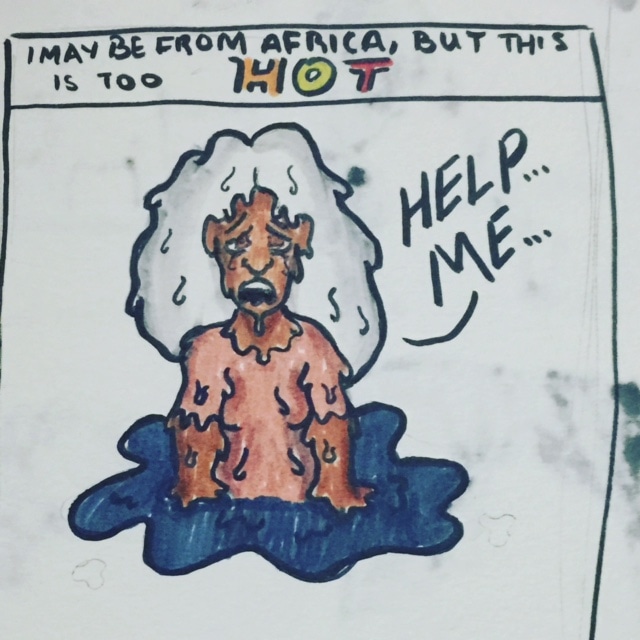 I MAY BE FROM AFRICA, BUT THIS
IS TOO HOT
HELP...
ME...